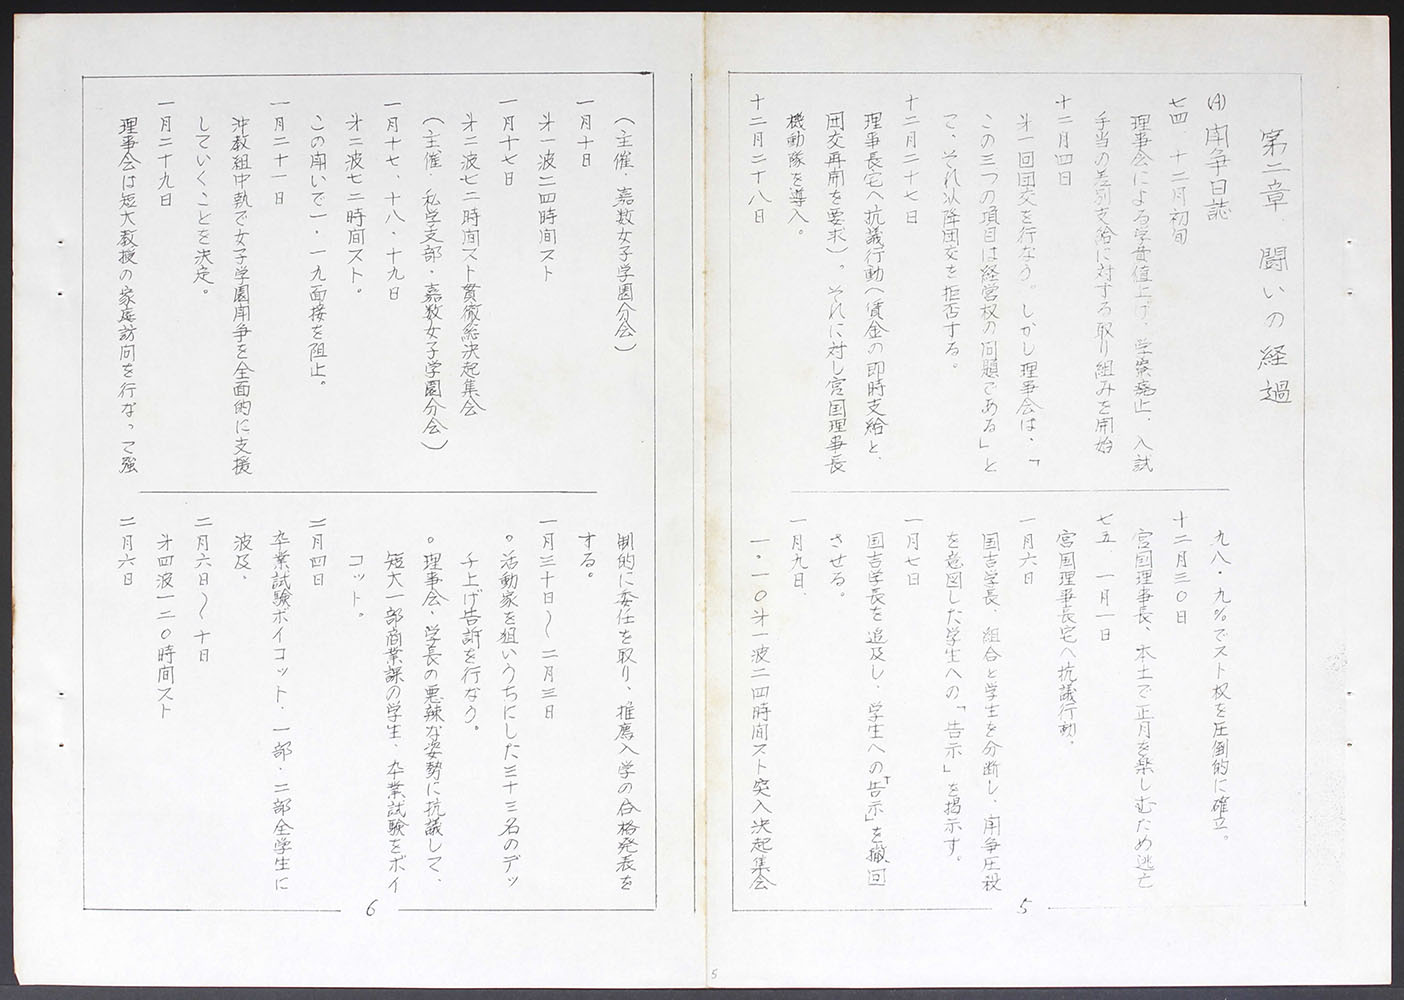 第二章、闘いの経過
(A) 闘争日誌
七四、十二月初旬
理事会による学費値上げ、学寮廃止、入試
手当の差別支給に対する取り組みを開始
十二月四日
第一回団交を行なう。しかし理事会は、「
この三つの項目は経営権の問題である」と
て、それ以降団交を拒否する。
十二月二十七日
理事長宅へ抗議行動へ賃金の即時支給と、
団交再開を要求)。それに対し宮国理事長
機動隊を導入。
十二月二十八日
九八・九%でスト権を圧倒的に確立。
十二月三〇日
宮国理事長、本土で正月を楽しむため逃亡
七五、一月一日
宮国理事長宅へ抗議行動、
一月六日
国吉学長、組合と学生を分断し、闘争圧殺
を意図した学生への「告示」を掲示す。
一月七日
国吉学長を追及し、学生への「告示」を撤回
させる。
一月九日、
一・一〇第一波二四時間スト突入決起集会
5
(主催・嘉数女子学園分会)
一月十日
第一波二四時間スト
一月十七日
第二波七二時間スト貫徹総決起集会
(主催・私学支部・嘉数女子学園分会)
一月十七、十八・十九日
第二波七二時間スト。
この闘いで一・一九面接を阻止。
一月二十一日
沖教組中執で女子学園闘争を全面的に支援
していくことを決定。
一月二十九日
理事会は短大教授の家庭訪問を行なって強
制的に委任を取り、推薦入学の合格発表を
する。
一月三十日〜二月三日
○活動家を狙いうちにした三十三名のデッ
チ上げ告訴を行なう。
○理事会・学長の悪辣な姿勢に抗議して、
短大一部商業課の学生、卒業試験をボイ
コット。
二月四日
卒業試験ボイコット、一部・二部全学生に
波及、
二月六日〜十日
第四波一二〇時間スト
二月六日
6
5